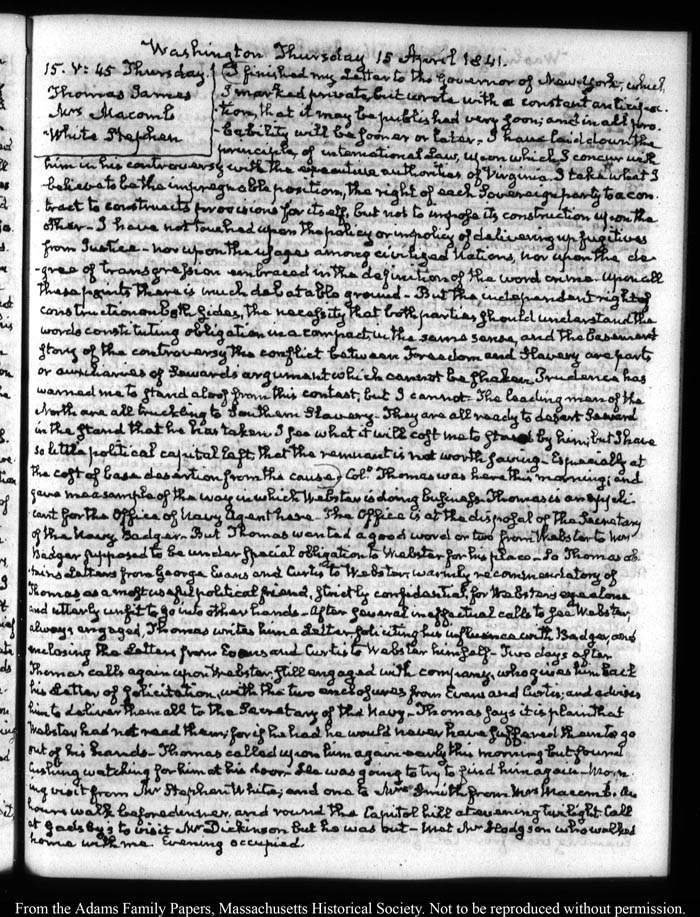 Washington Thursday 15 April 1841.
15. V: 45 Thursday.
Thomas James
Mrs Macomb
White Stephen
I finished my Letter to the Governor of New-York, which
I marked private, but wrote with a constant anticipa-
tion, that it may be published very soon, and in all pro-
-bability will be sooner or later. I have laid down the
principle of international Law, upon which I concur with
him in his controversy with the executive authorities of Virginia. I take what I
believe to be the impregnable position, the right of each Sovereign party to a con-
tract to construct its provisions for itself, but not to impose its construction upon the
other. I have not touched upon the policy or impolicy of delivering up fugitives
from Justice - nor upon the usages among civilized Nations, nor upon the de-
-gree of transgression embraced in the definition of the word crime. Upon all
these points there is much debatable ground - But the independent right of
construction on both sides, the necessity that both parties should understand the
words constituting obligation in a compact in the same sense, and the basement
story of the controversy the conflict between Freedom and Slavery are parts
or auxiliaries of Sewards argument which cannot be shaken. Prudence has
warned me to stand aloof from this contest, but I cannot. The leading men of the
North are all truckling to Southern Slavery. They are all ready to desert Seward
in the stand that he has taken. I see what it will cost me to stand by him; but I have
so little political capital left, that the remnant is not worth saving. Especially at
the cost of base desertion from the cause. Colo Thomas was here this morning; and
gave me a sample of the way in which Webster is doing business. Thomas is an appli-
cant for the Office of Navy Agent here. The Office is at the disposal of the Secretary
of the Navy Badger. But Thomas wanted a good word or two from Webster to him
Badger supposed to be under special obligation to Webster for his place. So Thomas ob-
tains Letters from George Evans and Curtis to Webster, warmly recommendatory of
Thomas as a most useful political friend, strictly confidential, for Webster's eye alone
and utterly unfit to go into other hands - After several ineffectual calls to see Webster,
always engaged, Thomas writes him a Letter soliciting his influence with Badger, and
inclosing the Letters from Evans and Curtis to Webster himself - Two days after
Thomas calls again upon Webster, still engaged with company, who gives him back
his Letter of solicitation, with the two enclosures from Evans and Curtis; and advises
him to deliver them all to the Secretary of the Navy - Thomas says it is plain that
Webster had not read them; for if he had he would never have suffered them to go
out of his hands - Thomas called upon him again early this morning but found
Cushing watching for him at his door. He was going to try to find him again - Morn-
ing visit from Mr Stephen White; and one to Mrs Smith from Mrs Macomb. An
hours walk before dinner, and round the Capitol hill at evening twilight. Call
at Gadsby's to visit Mr Dickinson but he was out - met Mr Hodgson who walked
home with me. Evening occupied.
From the Adams Family Papers, Massachusetts Historical Society. Not to be reproduced without permission.